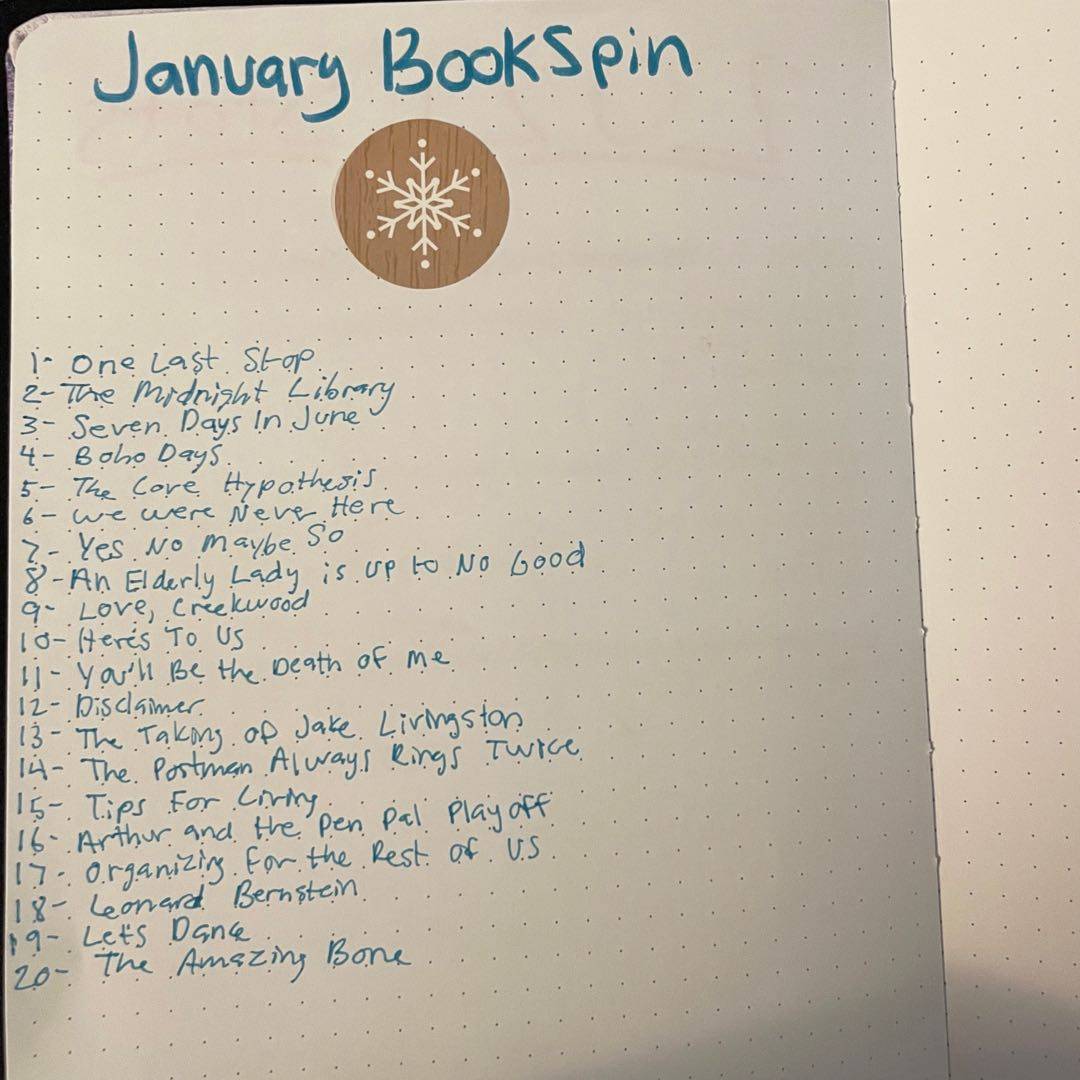 January BookSpin
1- One Last Stop
2- The Midnight Library
3- Seven Days In June
4- Boho Days
5- The Love Hypothesis
6- We were Never Here
7- Yes No Maybe So
8- An Elderly Lady is up to No Good
9- Love, Creekwood
10- Here's To Us
11- You'll Be the Death of Me
12- Disclaimer
13- The Taking of Jake Livingston
14- The Postman Always Rings Twice
15- Tips For Living
16- Arthur and the Pen Pal Playoff
17- Organizing For the Rest of Us
18- Leonard Bernstein
19- Let's Dance
20- The Amazing Bone